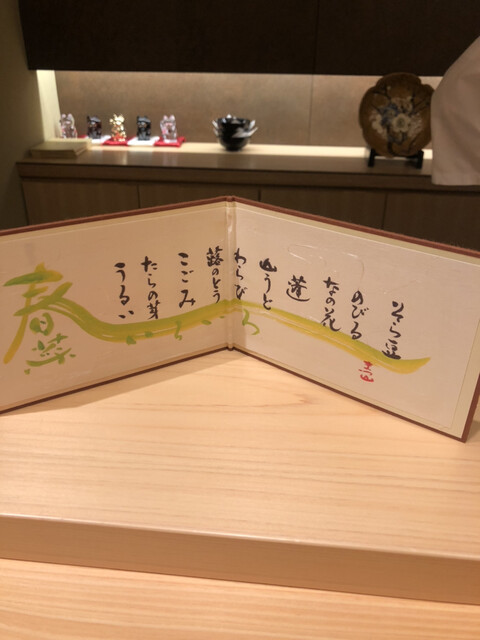 そら豆
のびる
なの花
蓬
山うど
わらび
蕗のとう
こごみ
たらの芽
うるい
春菜いろいろ